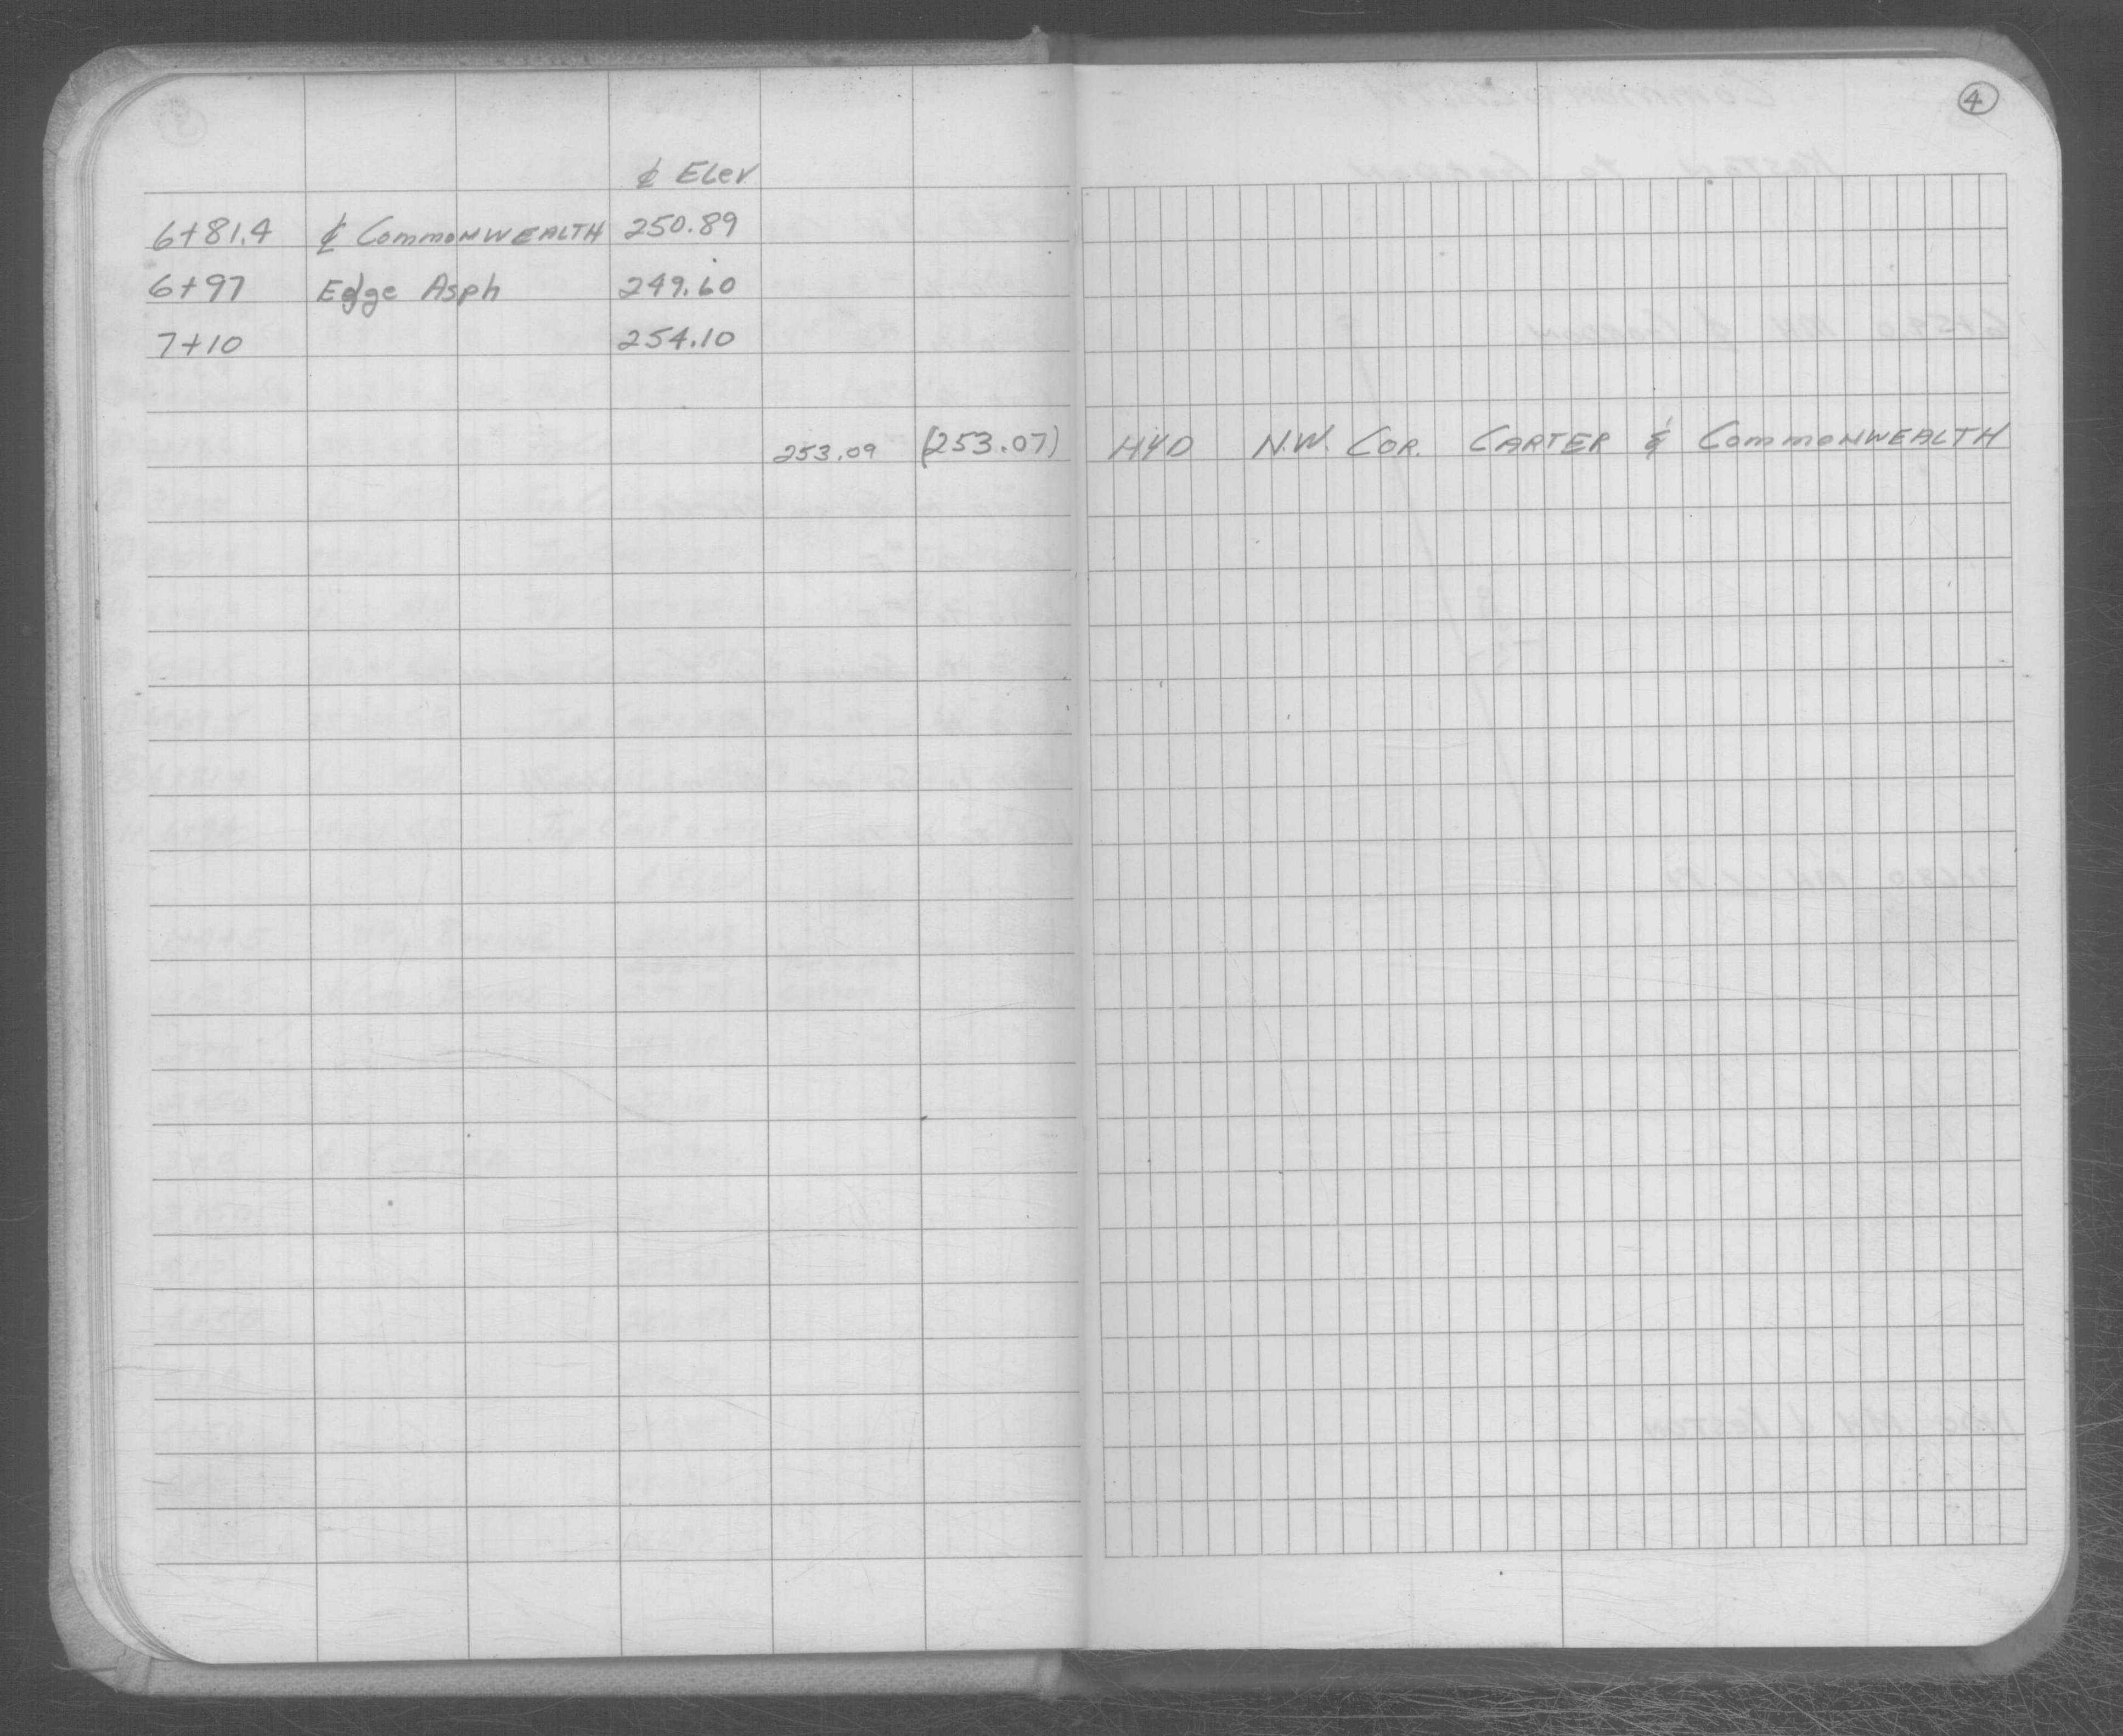 4
¢ Elev
6+81.4 ¢ COMMONWEALTH 250.89
6+97 Edge Asph 249.60
7+10 254.10
253.09 (253.07) HYD N.W. COR. CARTER & COMMONWEALTH